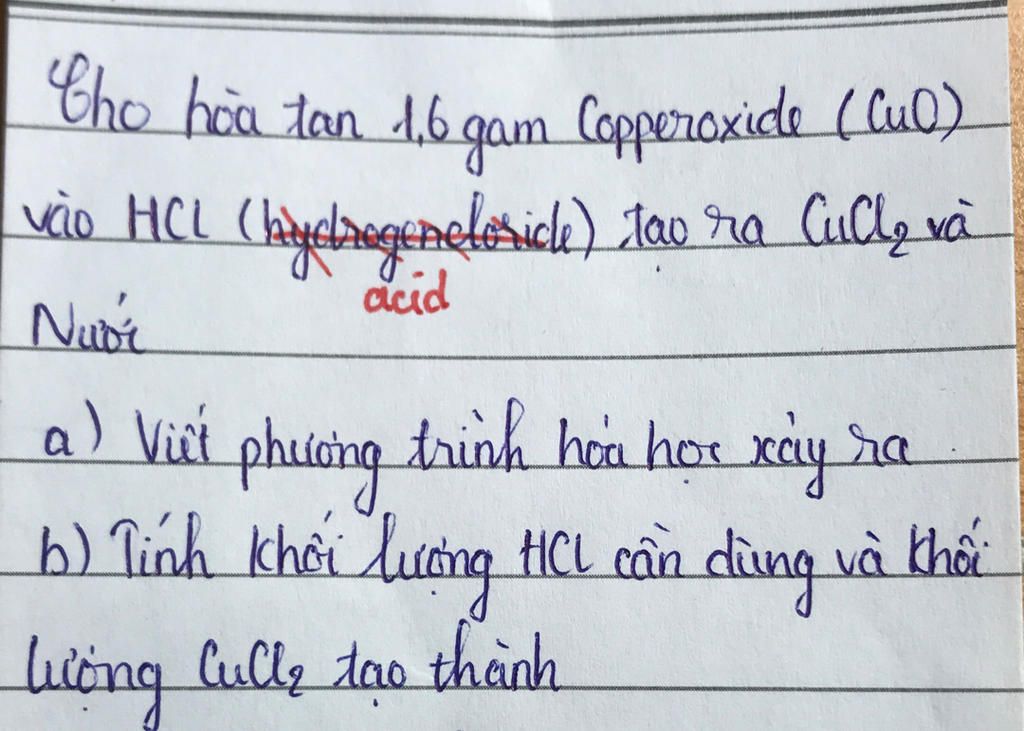 Cho hòa tan 1,6 gam Copperoxide (CuO)
vào HCl (hydrogencloride) tạo ra CuCl₂ và
acid
Nước
a) Viết phương trình hóa học xảy ra.
b) Tính khối lượng HCl cần dùng và khối
lượng CuCl₂ tạo thành